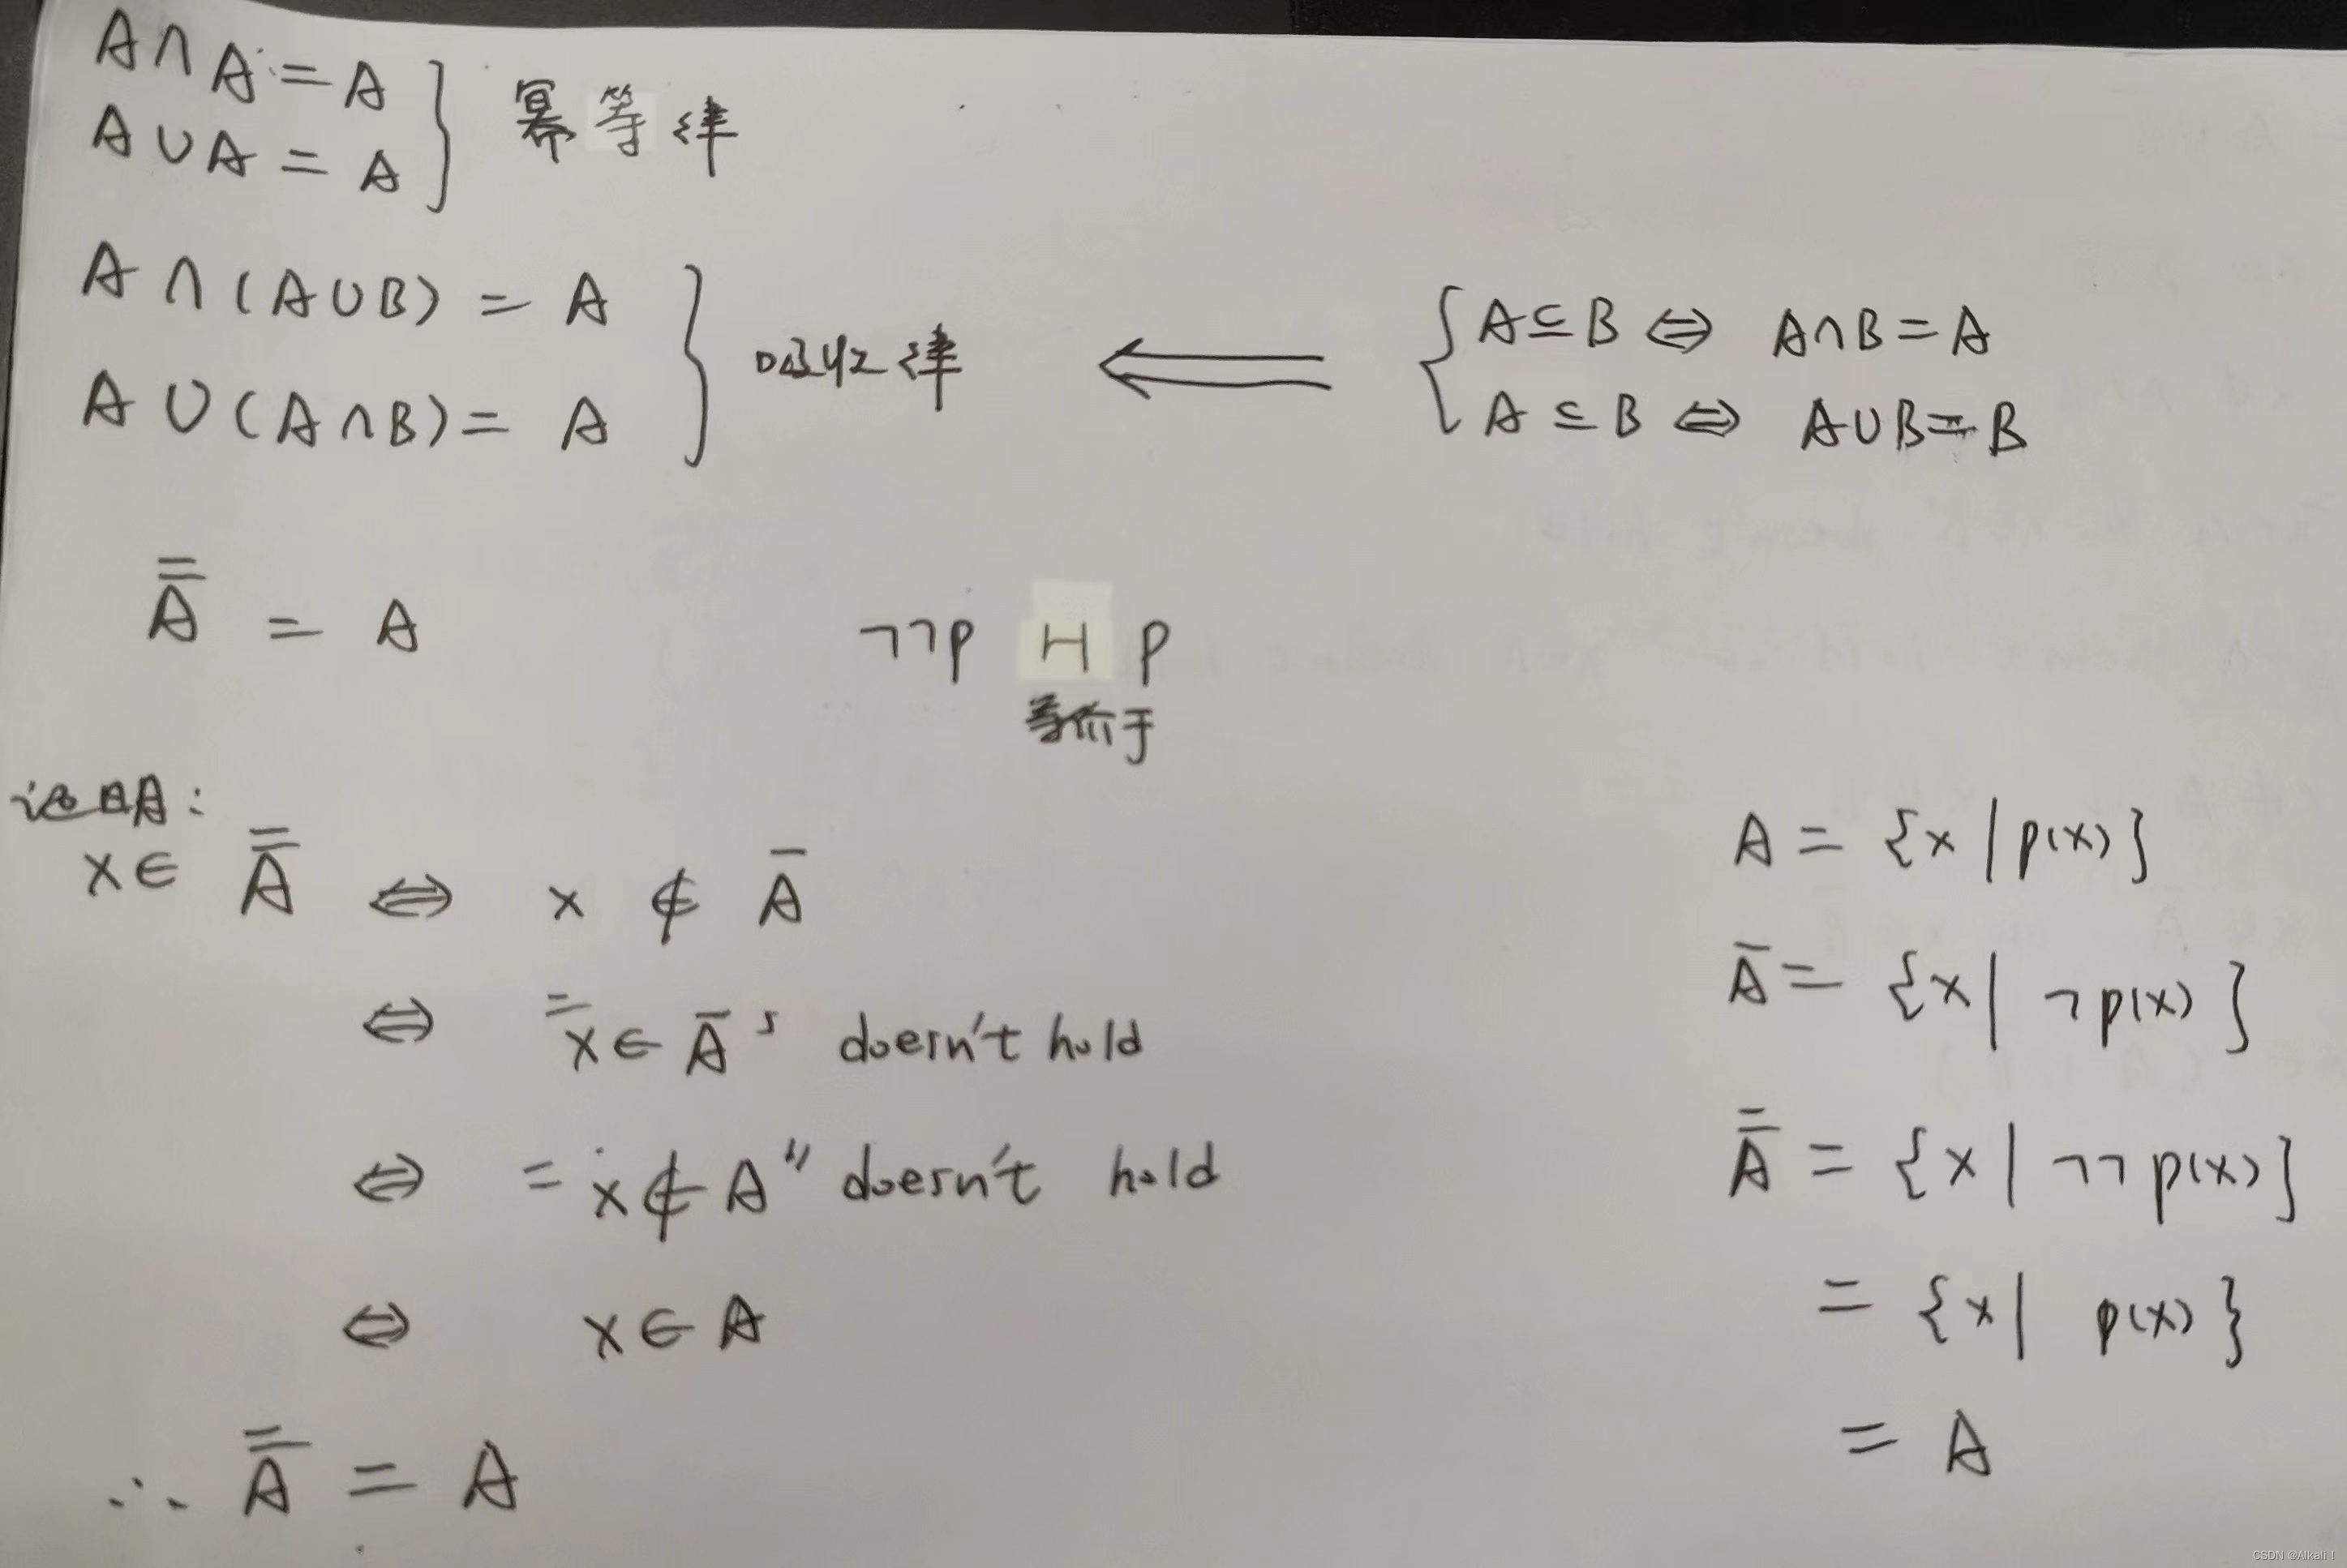 A∩A=A
A∪A=A } 幂等律
A∩(A∪B)=A
A∪(A∩B)=A } 吸收律 ⟸ { A⊆B ⇔ A∩B=A
A⊆B ⇔ A∪B=B
A̿ = A
¬¬p H p
等价于
证明:
x∈ A̿ ⇔ x ∉ Ā
⇔ "x∈Ā" doesn't hold
⇔ "x∉A" doesn't hold
⇔ x∈A
∴ A̿ = A
A = {x|p(x)}
Ā = {x|¬p(x)}
A̿ = {x|¬¬p(x)}
= {x| p(x)}
= A
CSDN @Alkali!